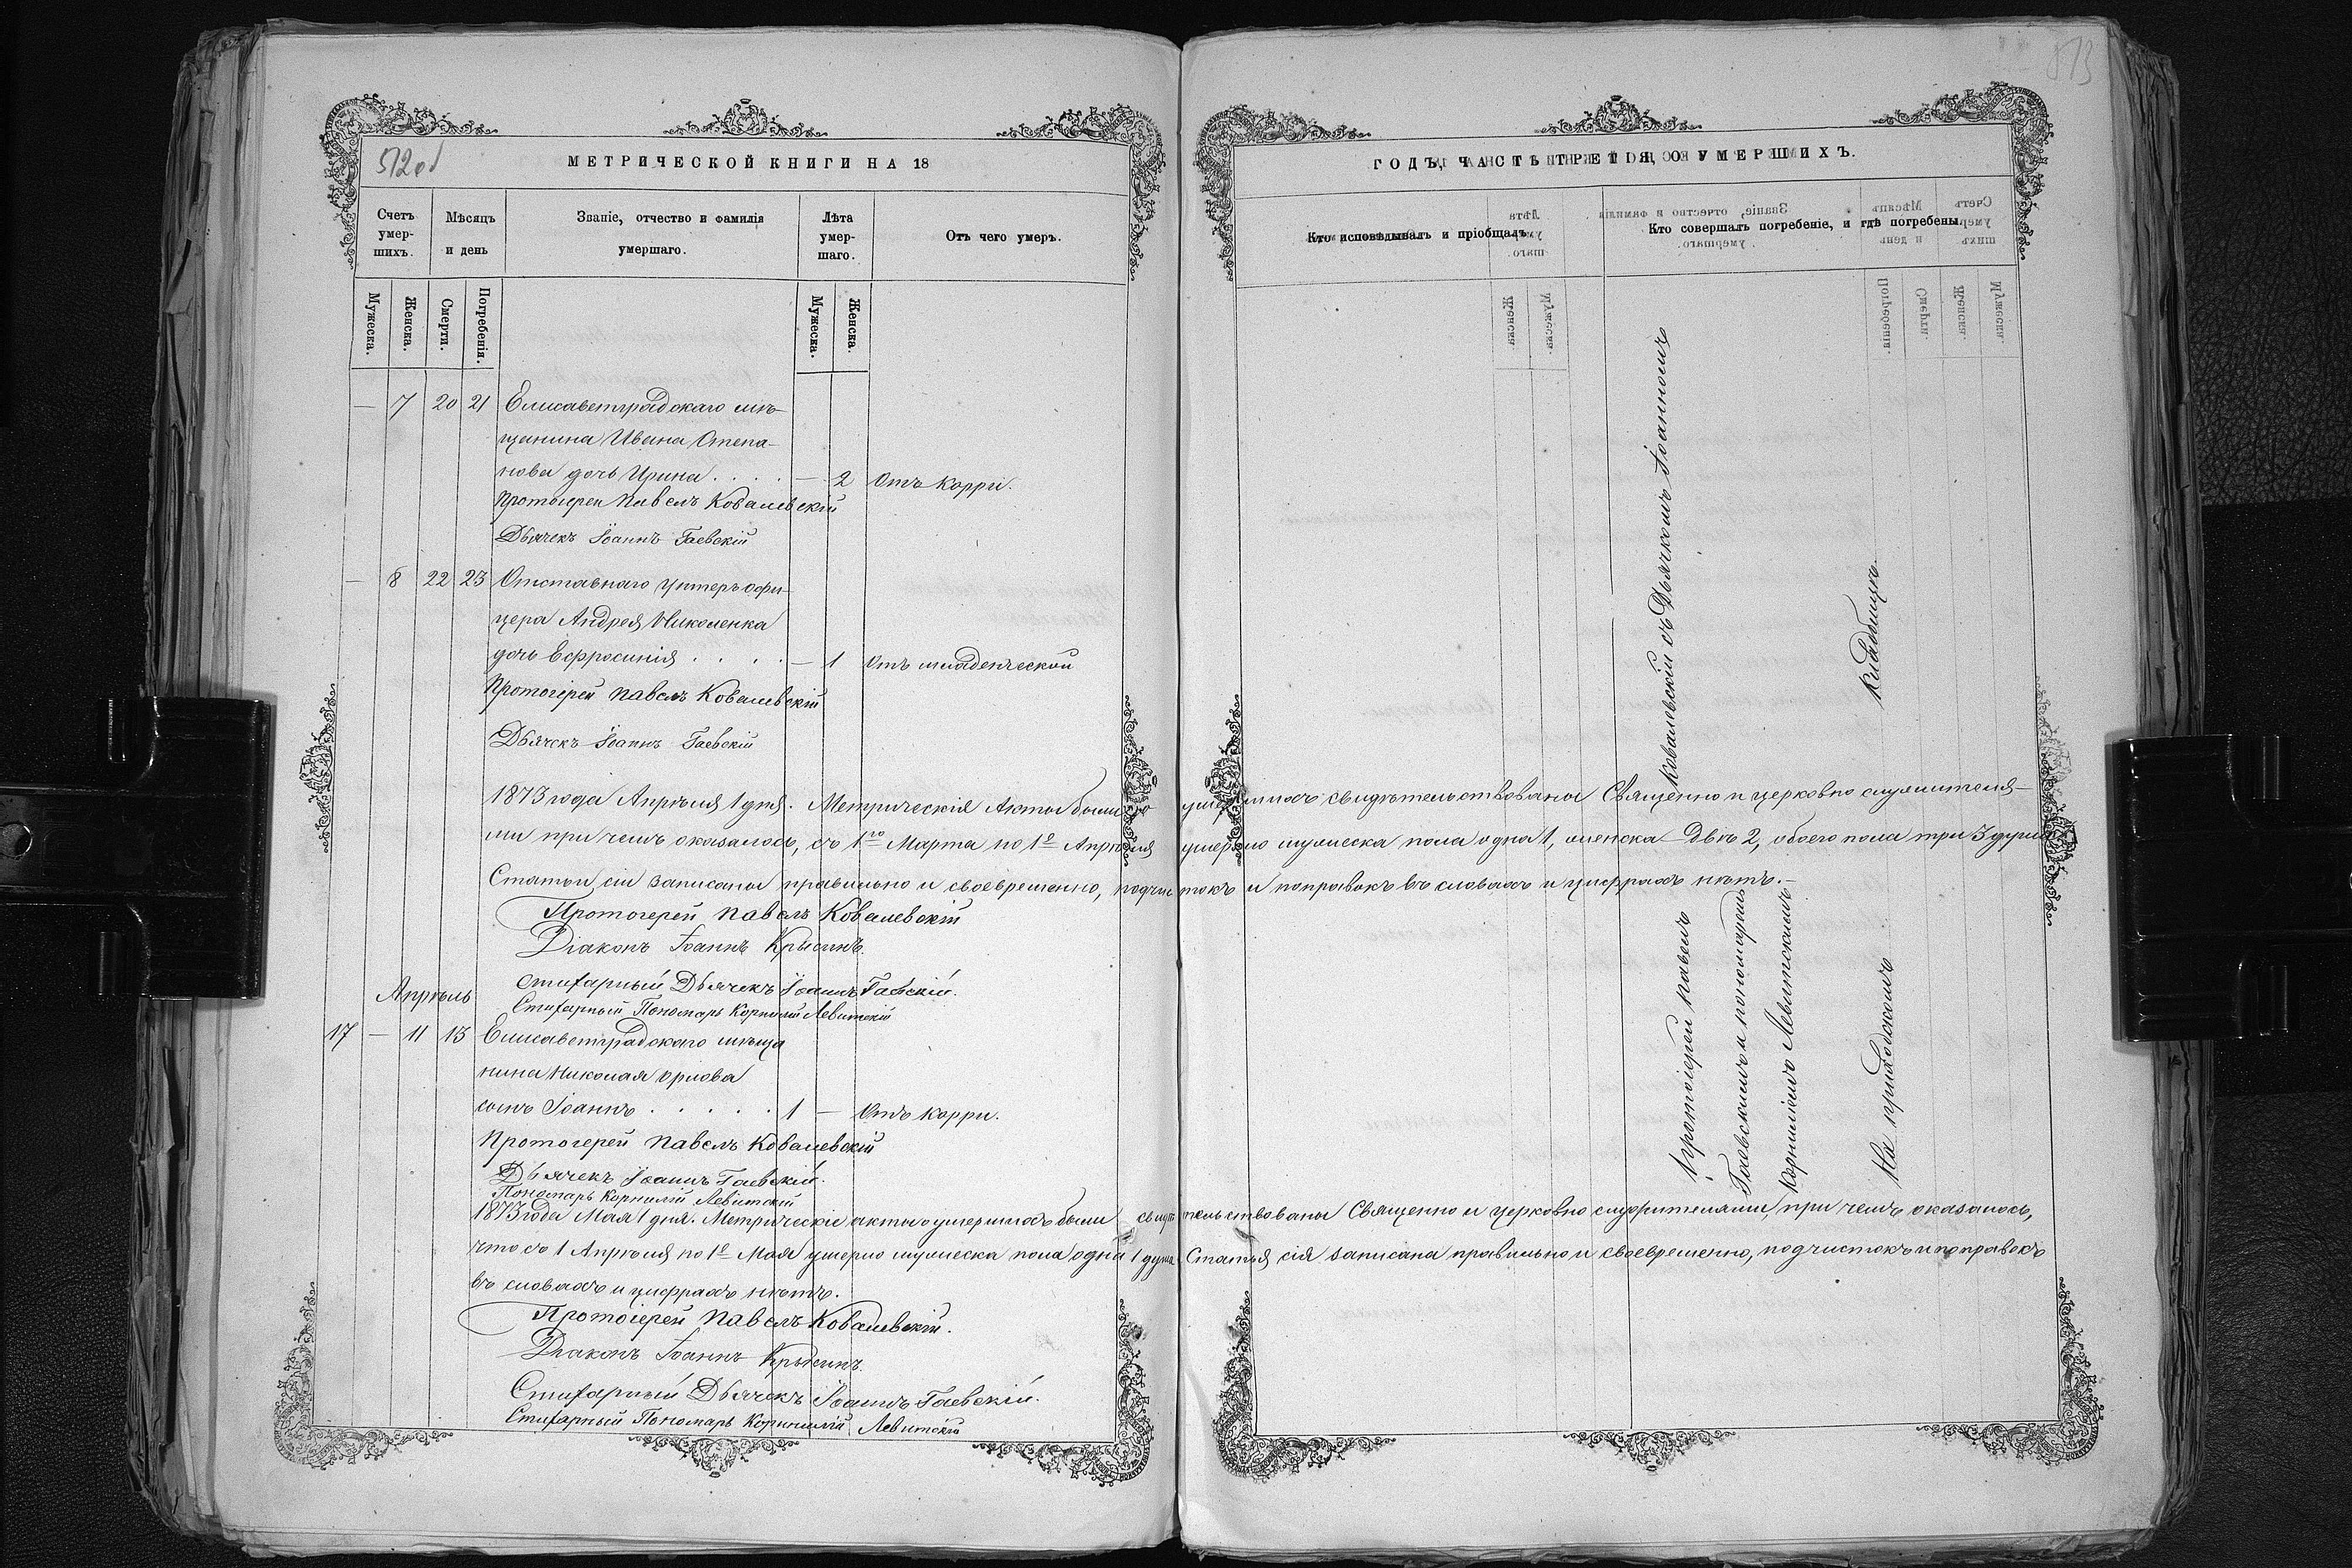 512об
МЕТРИЧЕСКОЙ КНИГИ НА 18
Счетъ умер- шихъ.
Мѣсяцъ и день
Званіе, отчество и фамилія умершаго.
Лѣта умер- шаго.
Отъ чего умеръ.
Мужеска.
Женска.
Смерти.
Погребенія.
Мужеска.
Женска.
— 7 20 21 Елисаветградскаго мѣ-
щанина Ивана Степа-
нова дочь Ирина . . . . — 2 Отъ корри.
Протоіерей Павелъ Ковалевскій
Дьячекъ Іоаннъ Гаевскій
— 8 22 23 Отставнаго унтеръ офи-
цера Андрея Николенка
дочь Ефросинія . . . . — 1 Отъ младенческой
Протоіерей Павелъ Ковалевскій
Дьячекъ Іоаннъ Гаевскій
1873 года Апрѣля 1 дня. Метрическія Акты были о умершихъ свидѣтельствованы Священно и церковно служителя-
ми при чемъ оказалось, съ 1го Марта по 1е Апрѣля умерло мужеска пола одна 1, женска двѣ 2, обоего пола три 3 души
Статьи сіи записаны правильно и своевременно, подчистокъ и поправокъ въ словахъ и цифрахъ нѣтъ.—
Протоіерей Павелъ Ковалевскій
Діаконъ Іоаннъ Крысинъ.
Стихарный Дьячекъ Іоаннъ Гаевскій.
Стихарный Пономарь Корнилій Левитскій
Апрѣль
17 — 11 13 Елисаветградскаго мѣща
нина Николая Орлова
сынъ Іоаннъ . . . . . . 1 — Отъ корри.
Протоіерей Павелъ Ковалевскій
Дьячекъ Іоаннъ Гаевскій.
Пономарь Корнилій Левитскій
1873 года Мая 1 дня. Метрическіе акты о умершихъ были свидѣтельствованы Священно и церковно служителями, при чемъ оказалось,
что съ 1 Апрѣля по 1е Мая умерло мужеска пола одна 1 душа. Статья сія записана правильно и своевременно, подчистокъ и поправокъ
въ словахъ и цифрахъ нѣтъ.
Протоіерей Павелъ Ковалевскій.
Діаконъ Іоаннъ Крысинъ.
Стихарный Дьячекъ Іоаннъ Гаевскій.
Стихарный Пономарь Корнилій Левитскій
513
ГОДЪ, ЧАСТЬ ТРЕТІЯ, О УМЕРШИХЪ.
Кто исповѣдывалъ и пріобщалъ.
Кто совершалъ погребеніе, и гдѣ погребены.
Ковалевскій съ Дьячкомъ Іоанномъ
кладбищѣ
Протоіерей Павелъ
Гаевскимъ и пономаремъ
Корниліемъ Левитскимъ
На приходскомъ